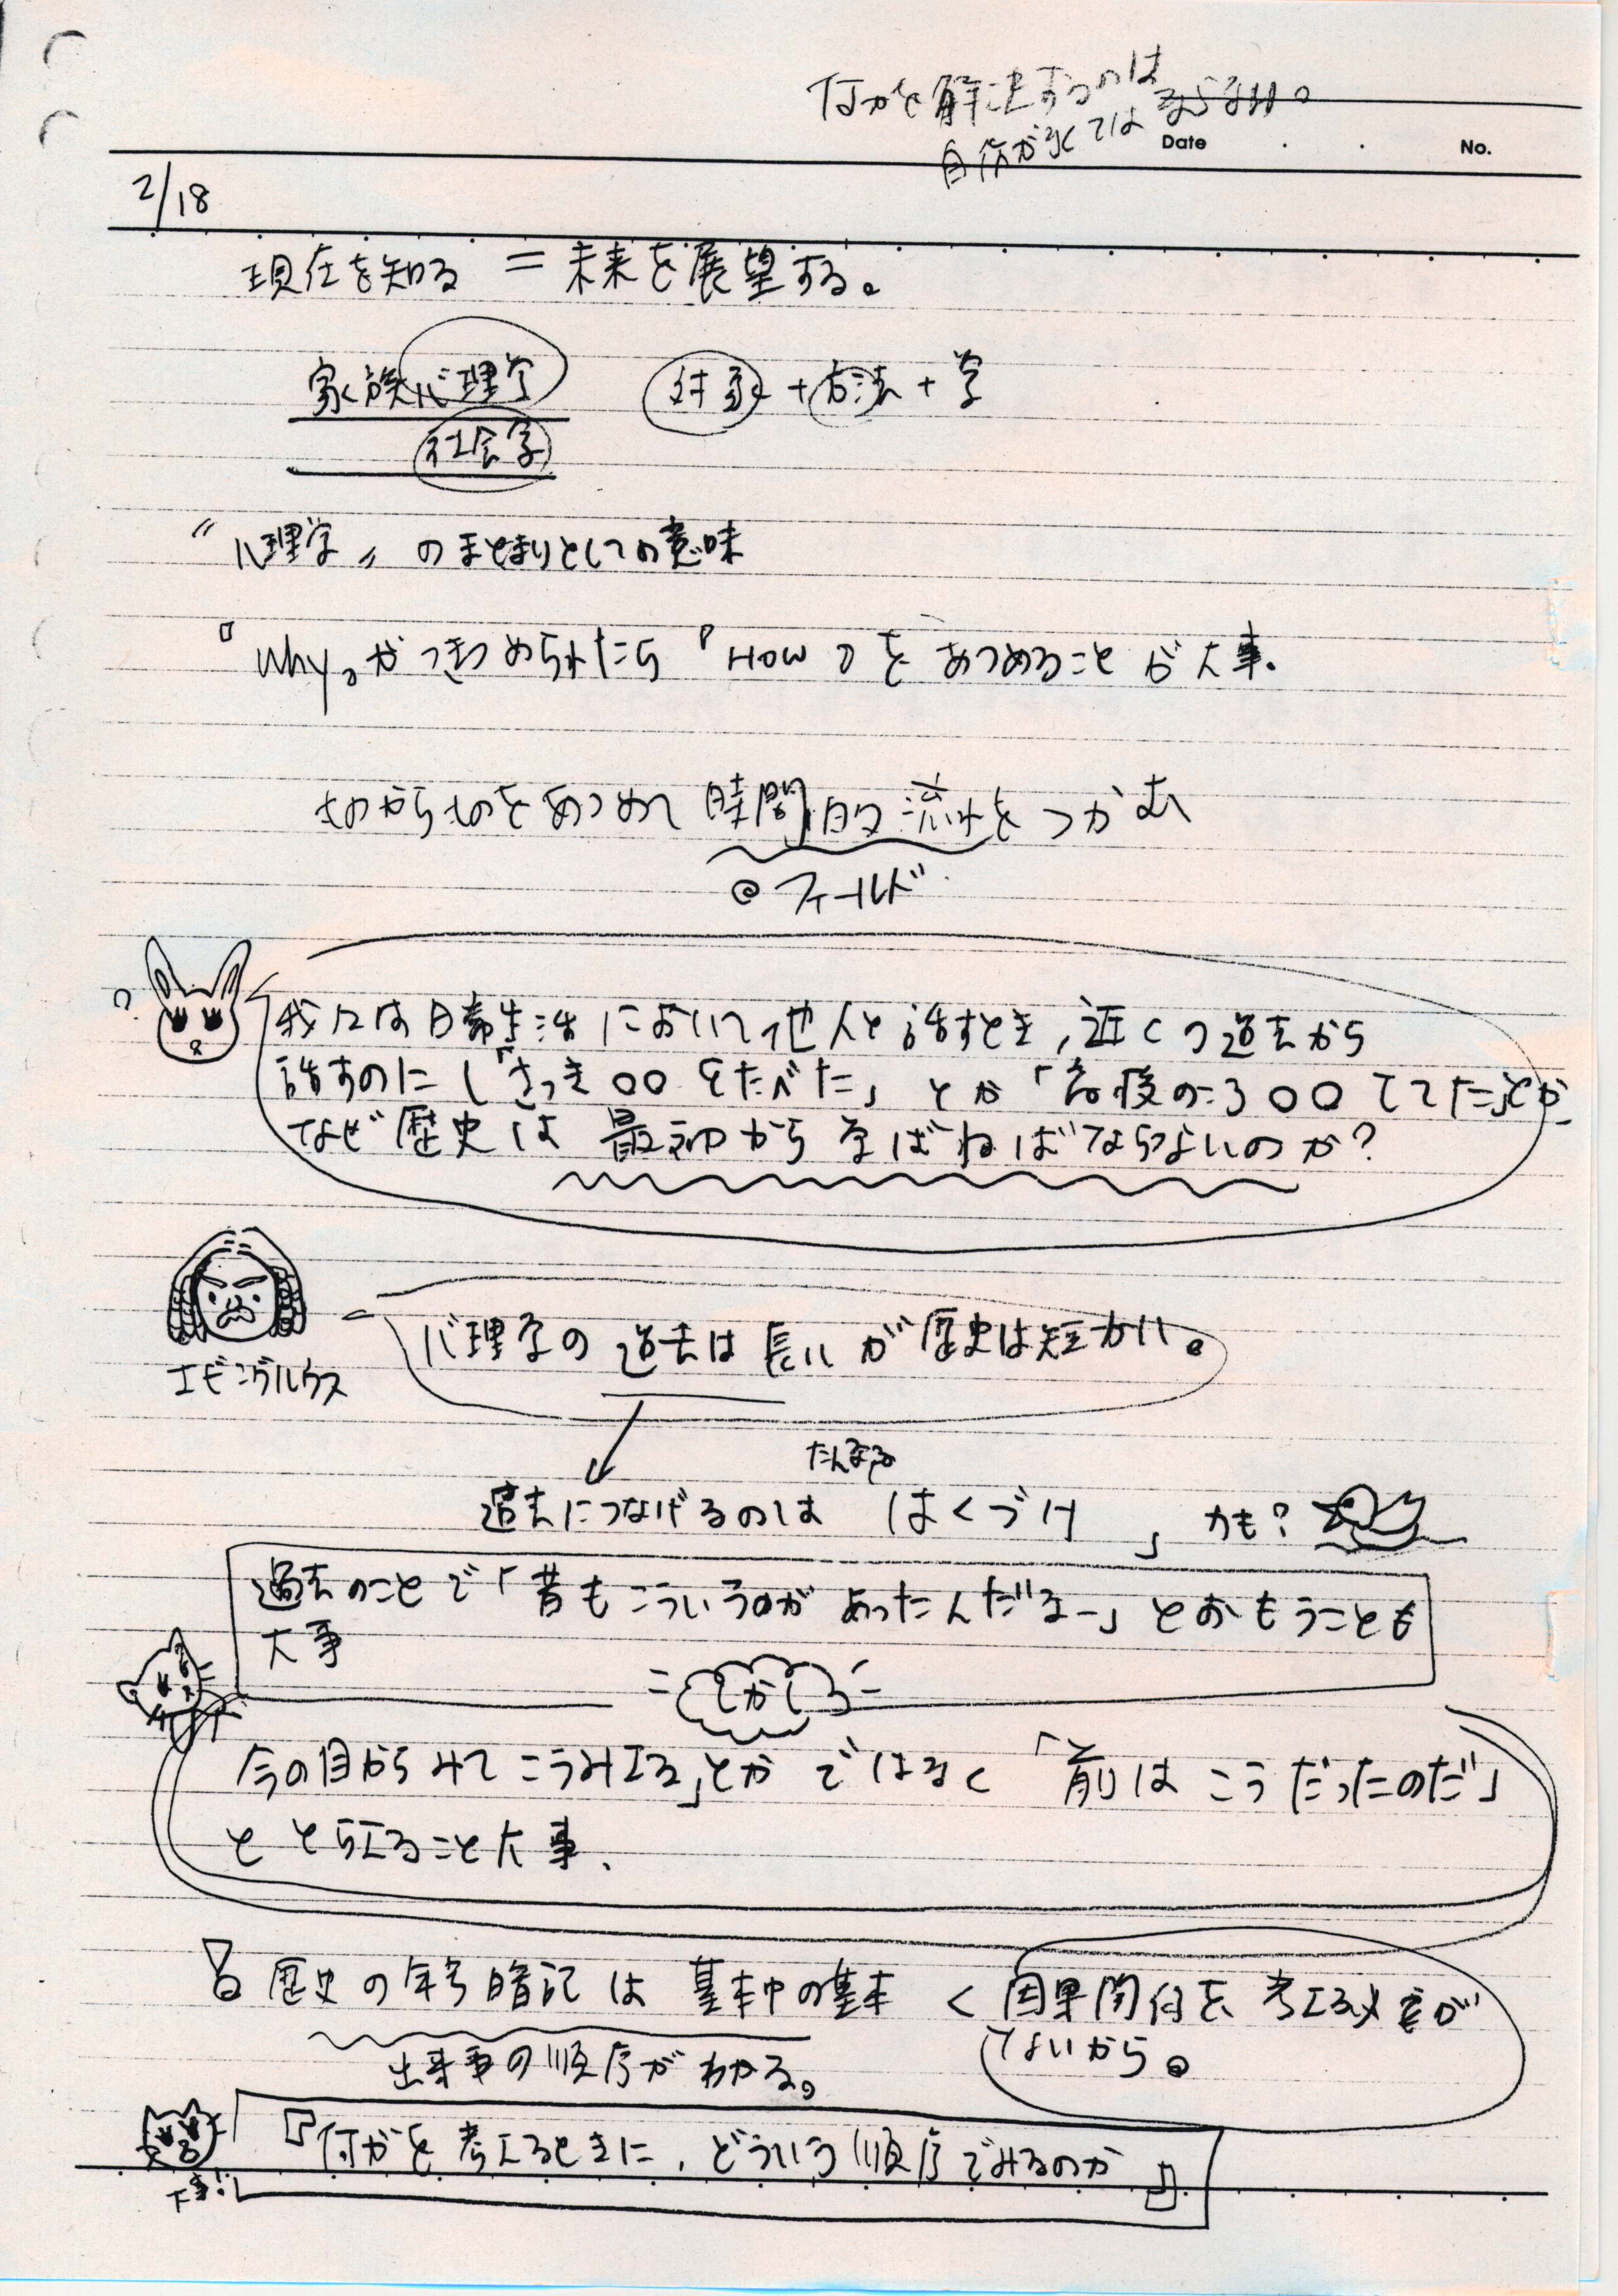 何かを解決するのは
自分が永くてはならない。
Date . . No.
2/18
現在を知る = 未来を展望する。
家族心理学 対象 + 方法 + 学
社会学
"心理学" のまとまりとしての意味
『Why』がつきつめられたら『HOW』をあつめることが大事.
ものからものをあつめて 時間的流れを つかむ
@フィールド
?
我々は日常生活において他人と話すとき, 近くの過去から
話すのに「さっき〇〇をたべた」とか「午後のころ〇〇してた」とか
なぜ歴史は 最初から 学ばねばならないのか?
心理学の 過去は 長いが 歴史は短かい。
エビングハウス
たんなる
過去につなげるのは はくづけ」 かも?
過去のことで「昔もこういうのが あったんだなー」とおもうことも
大事
しかしろ
今の目からみて こうみえる」とか ではなく 「前は こうだったのだ」
と とらえること大事.
歴史の年号暗記は 基本中の基本 < 因果関係を 考える必要が
ないから。
出来事の順序が わかる。
『何かを考えるときに, どういう順序でみるのか』
大事!!